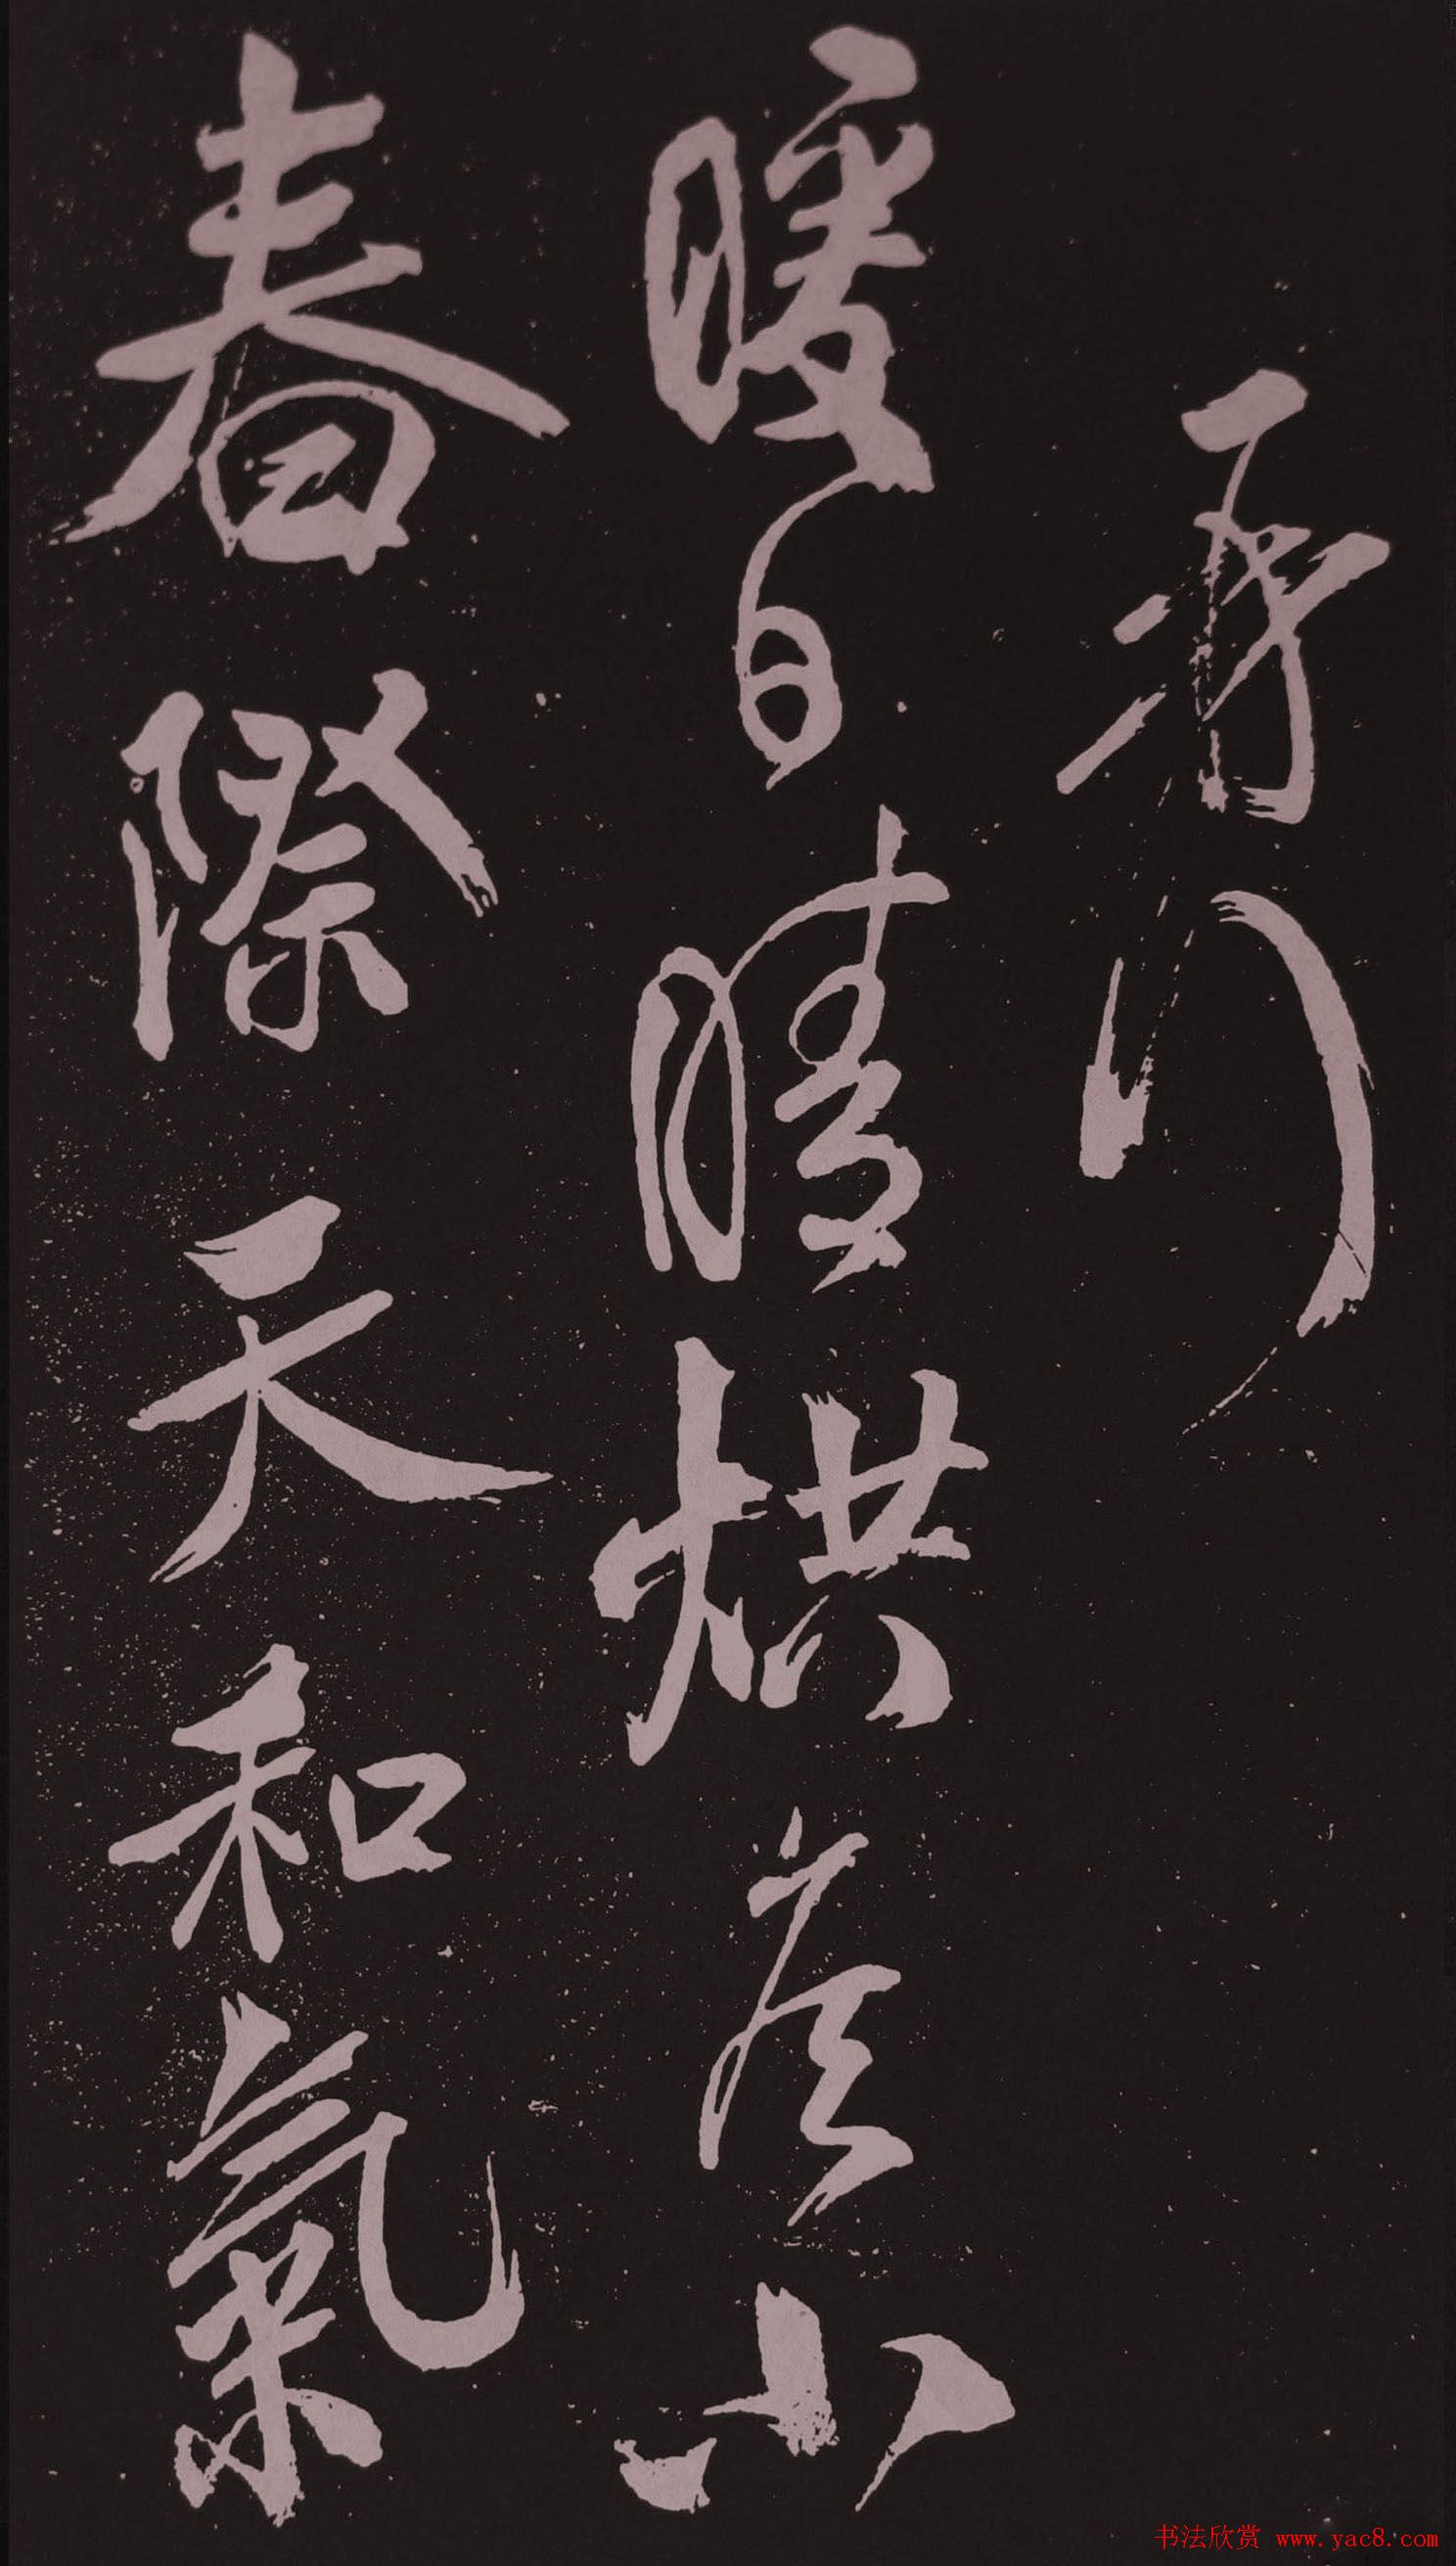 暖日晴烘候小
春際天和氣
书法欣赏 www.yac8.com